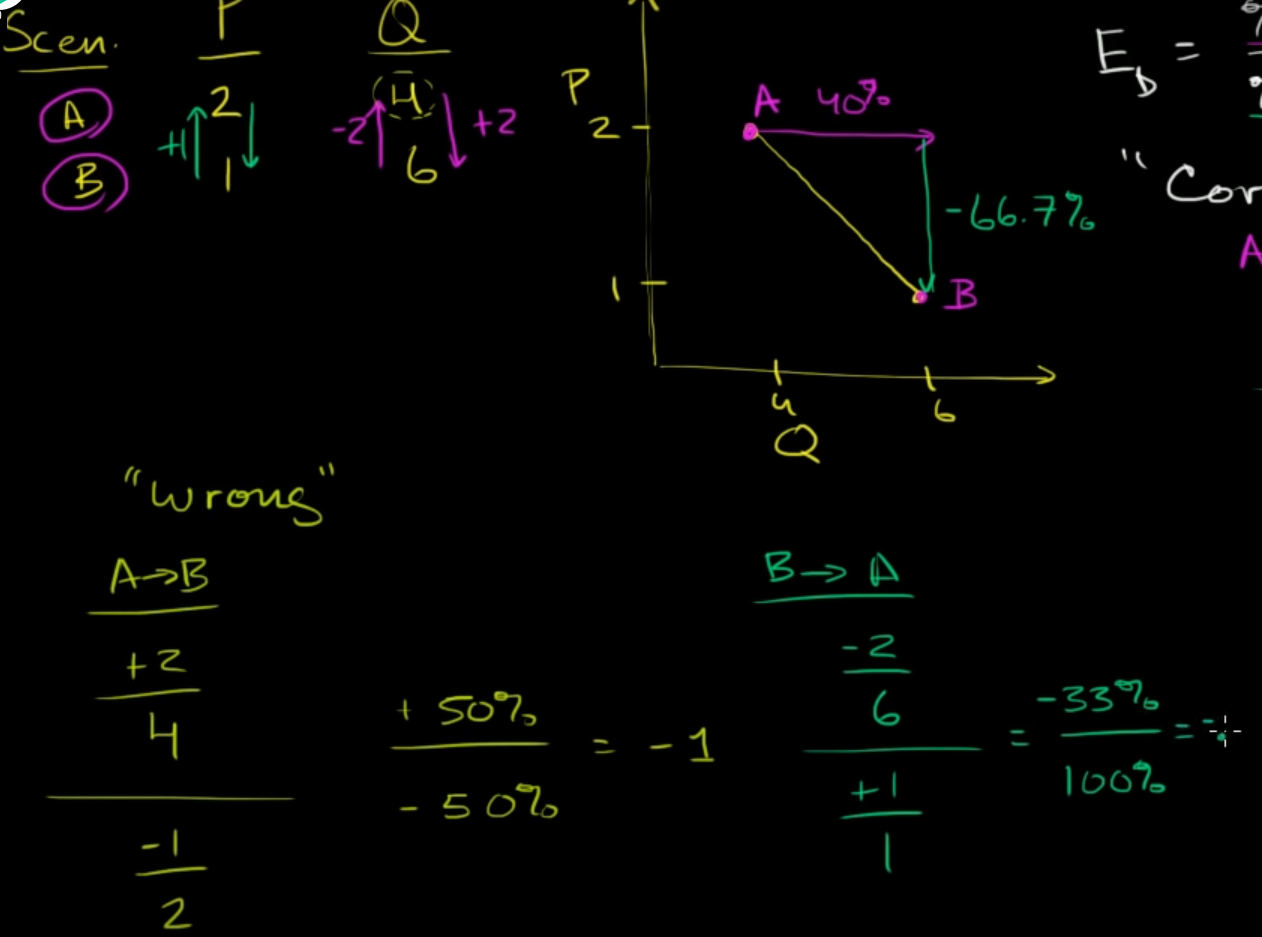 Scen. P Q
A 2 4
B 1 6
+1
-2 +2
P
2
1
A 40%
-66.7%
B
4 6
Q
E_D =
"Cor
A
"wrong"
A→B
+2
4
-1
2
+ 50%
- 50%
= - 1
B → A
-2
6
+1
1
= -33%
100%
= -.